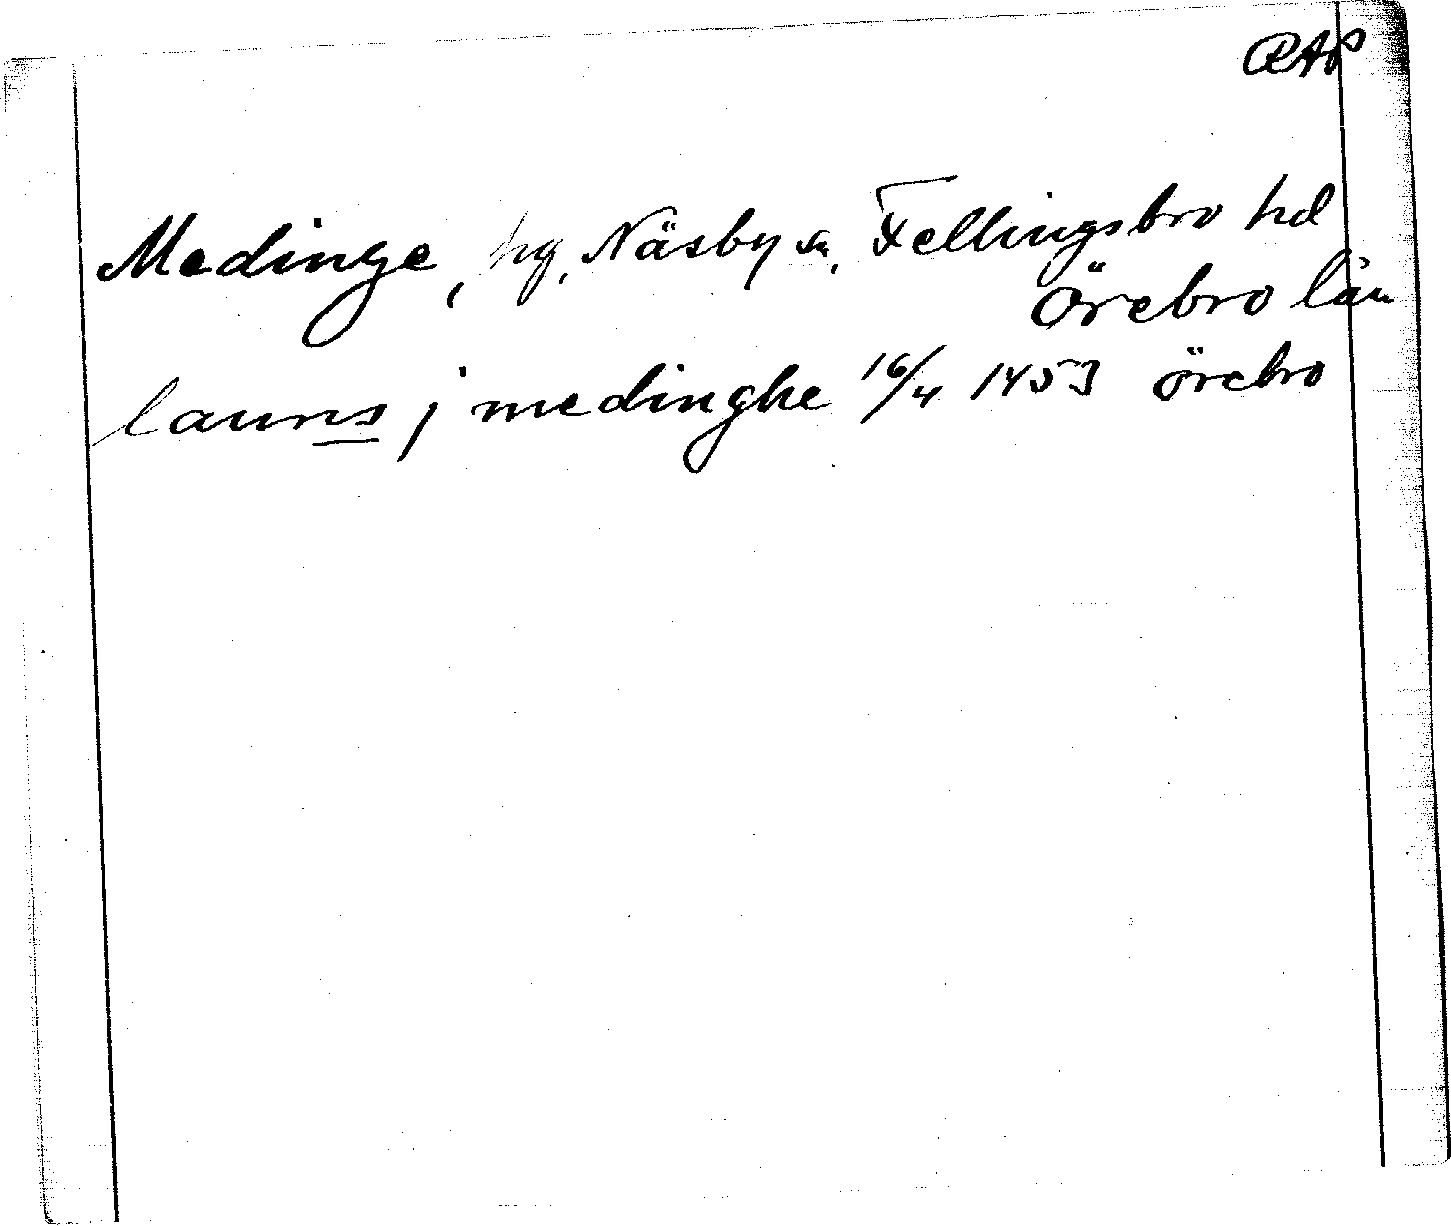 RAP
Medinge, hg, Näsby sn, Fellingsbro hd
Örebro län
lauris j medinghe 16/4 1453 örebro